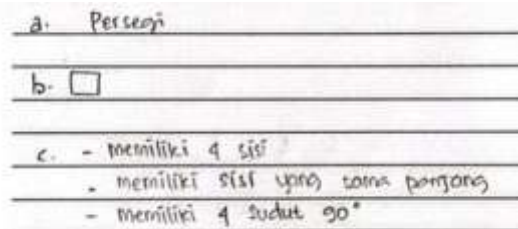 a. Persegi
b.
c. - memiliki 4 sisi
- memiliki sisi yang sama panjang
- memiliki 4 sudut 90°